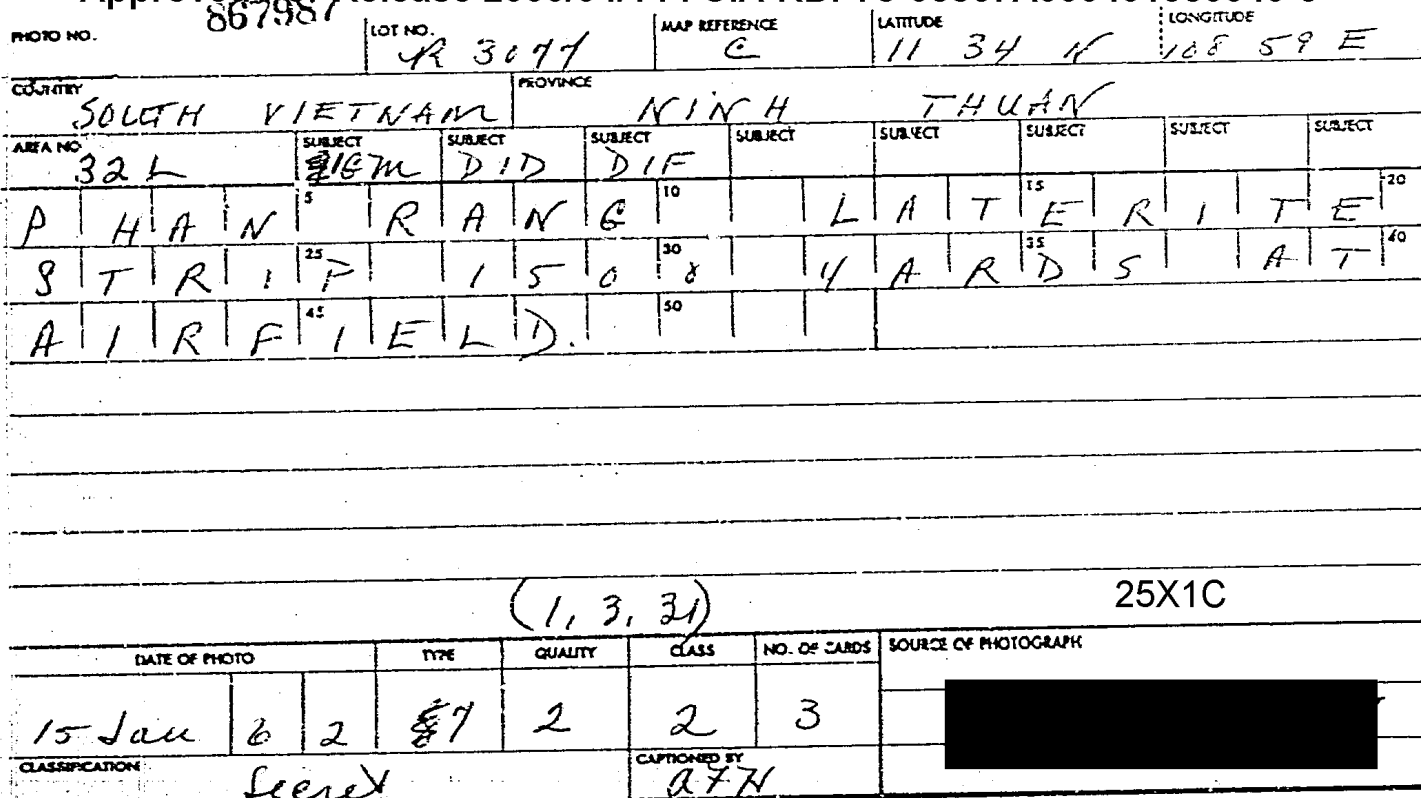 867987
PHOTO NO. LOT NO. R 3077 MAP REFERENCE C LATITUDE 11 34 N LONGITUDE 108 59 E
COUNTRY SOUTH VIETNAM PROVINCE NINH THUAN
AREA NO. 32L SUBJECT GM SUBJECT DID SUBJECT DIF SUBJECT SUBJECT SUBJECT SUBJECT SUBJECT
PHAN 5 RANG 10 LAT 15 ERITE 20
STRI 25 P 150 30 YAR 35 DS AT 40
AIRF 45 IELD. 50
(1, 3, 31)
25X1C
DATE OF PHOTO TYPE QUALITY CLASS NO. OF CARDS SOURCE OF PHOTOGRAPH
15 Jan 6 2 7 2 2 3
CLASSIFICATION Secret CAPTIONED BY